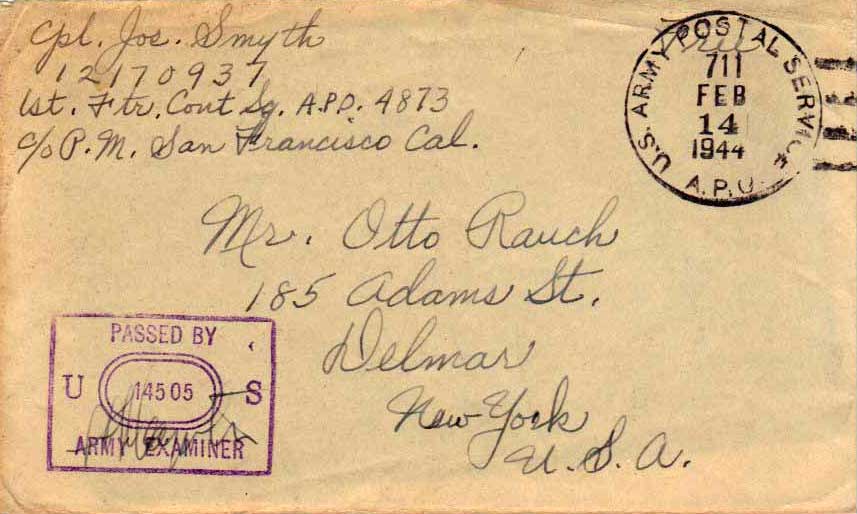 Cpl. Jos. Smyth
12170937
1st. Ftr. Cont Sq. A.P.O. 4873
c/o P.M. San Francisco Cal.
Free
U.S. ARMY POSTAL SERVICE
711
FEB
14
1944
A.P.O.
Mr. Otto Rauch
185 Adams St.
Delmar
New York
U.S.A.
PASSED BY
U 14505 S
ARMY EXAMINER